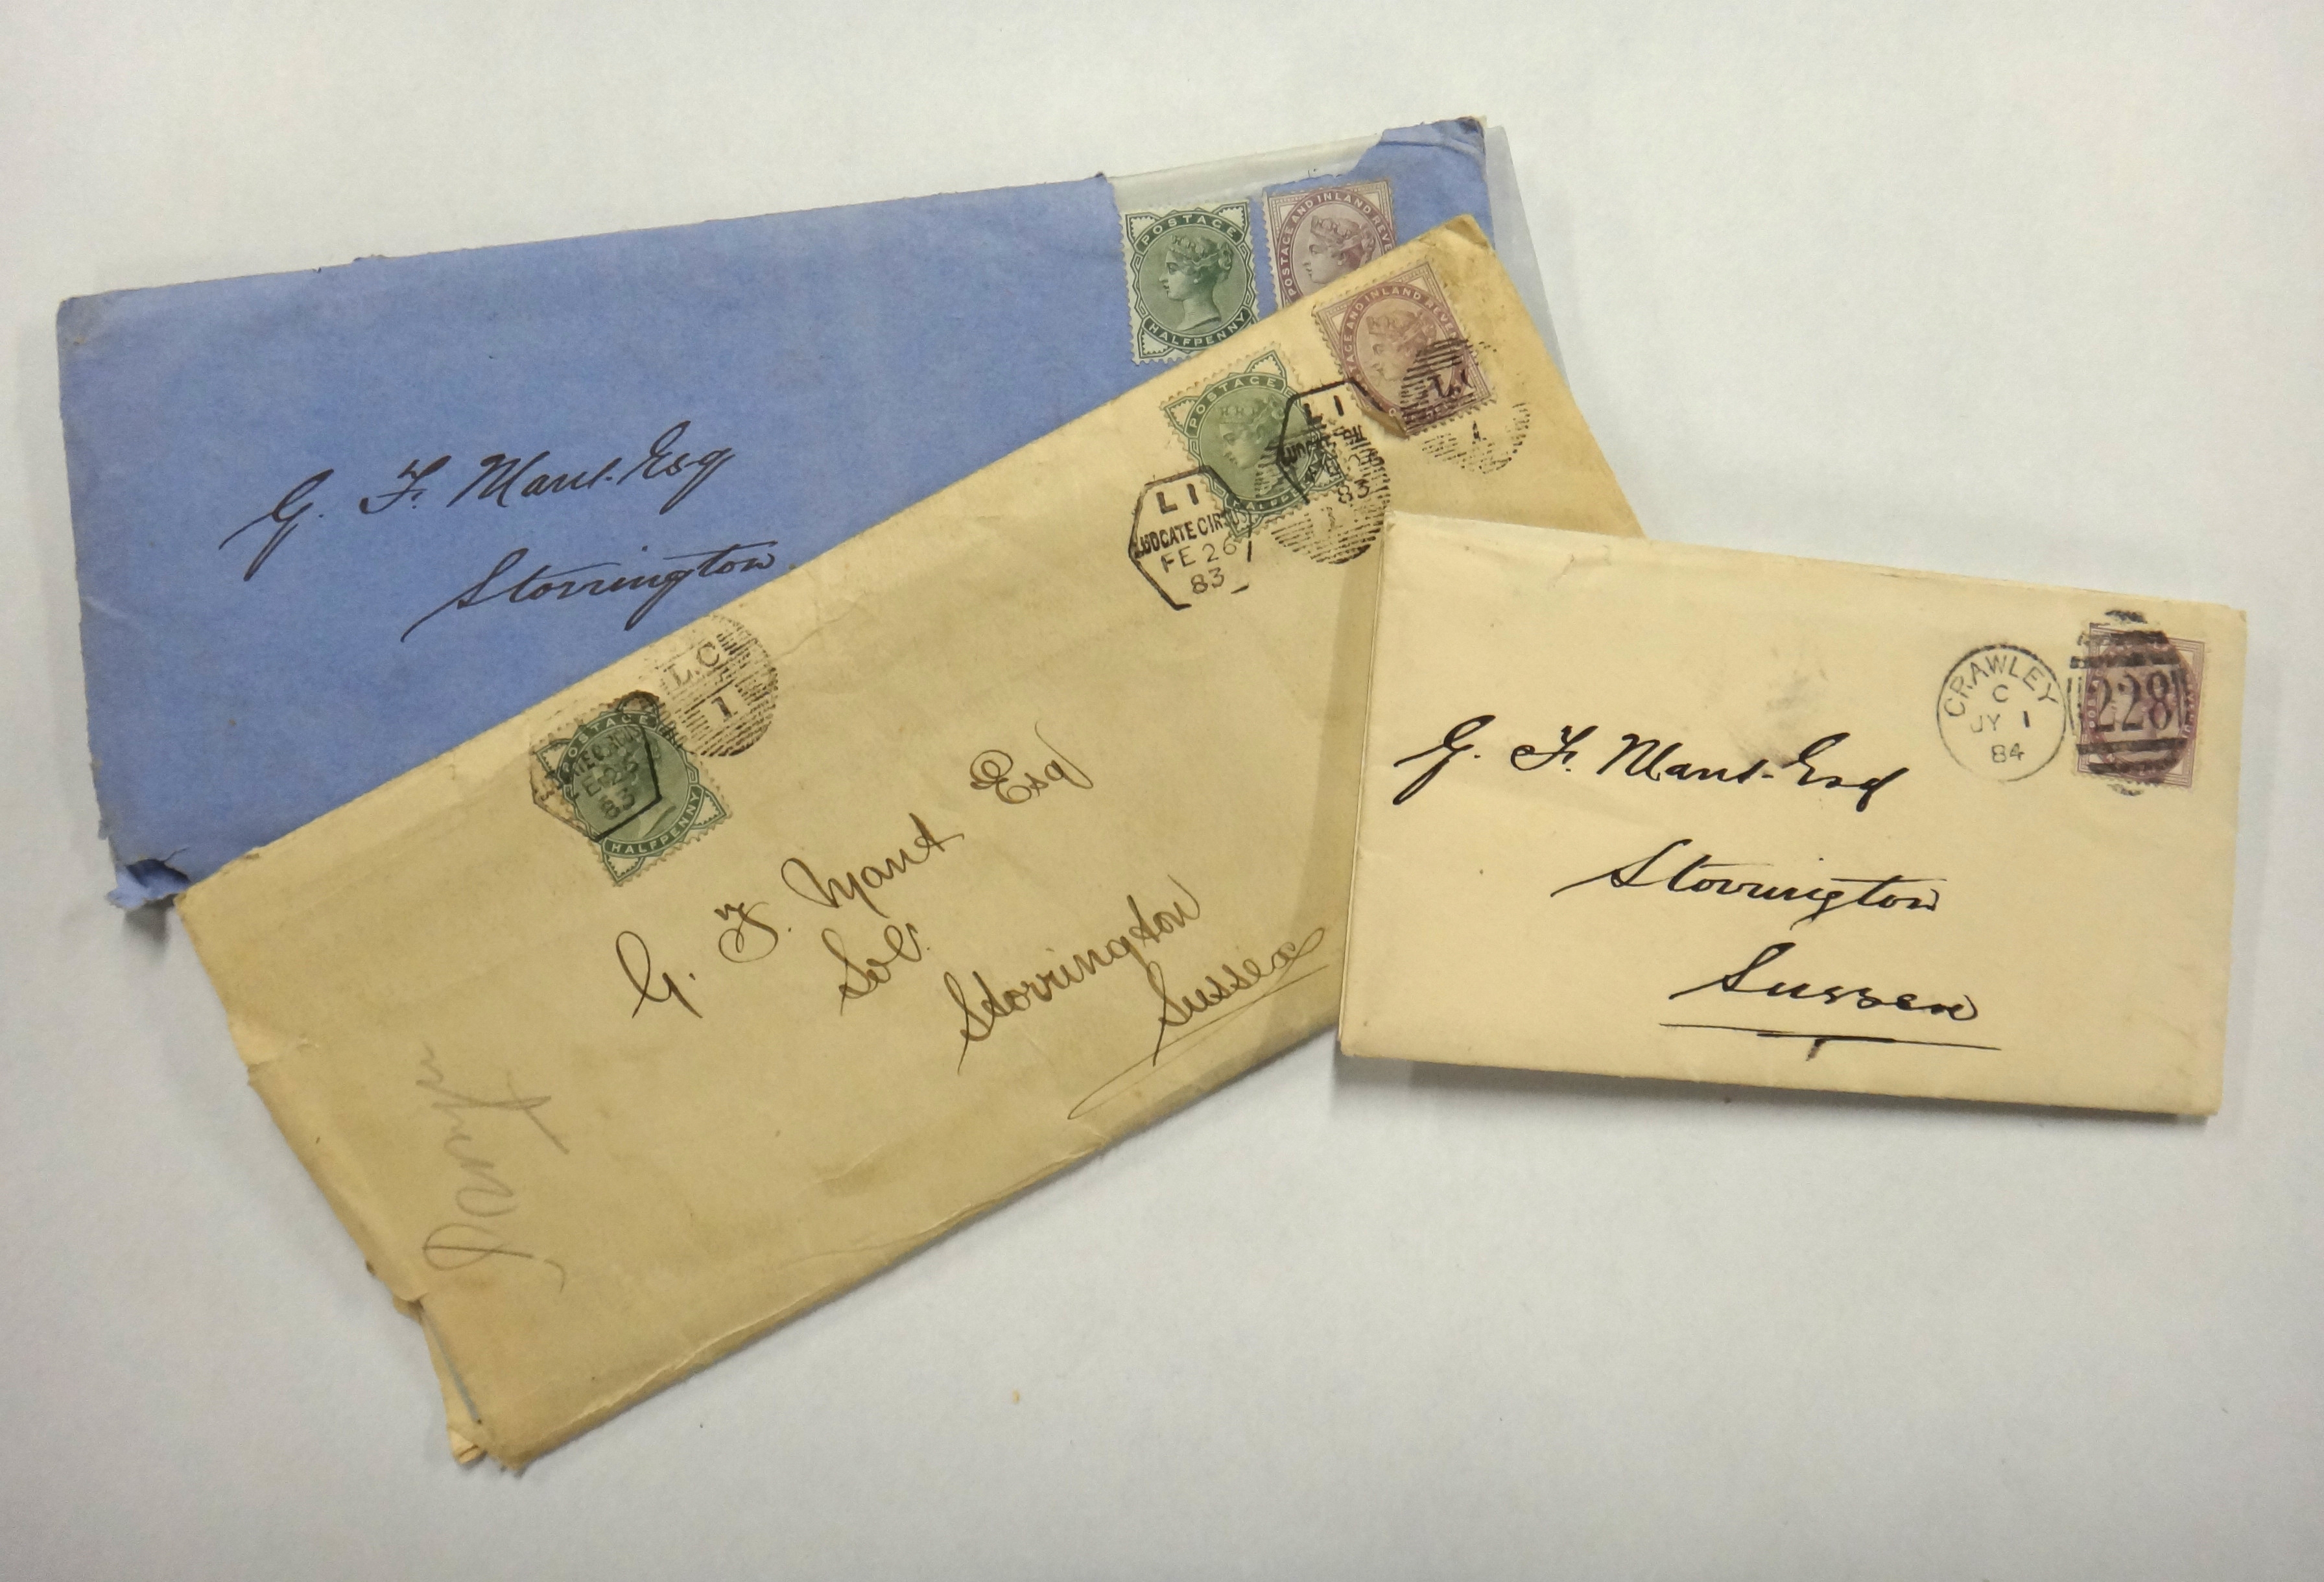 POSTAGE
HALFPENNY
POSTAGE AND INLAND REVE
G. F. Mant. Esq
Storrington
POSTAGE
AND INLAND REVEN
LI
83
LI
LUDGATE CIRCUS
FE 26
83
L.C
1
POSTAGE
FE 26
83
HALFPENNY
G. F. Mant Esq
Solr.
Storrington
Sussex
CRAWLEY
C
JY 1
84
228
G. F. Mant. Esq
Storrington
Sussex